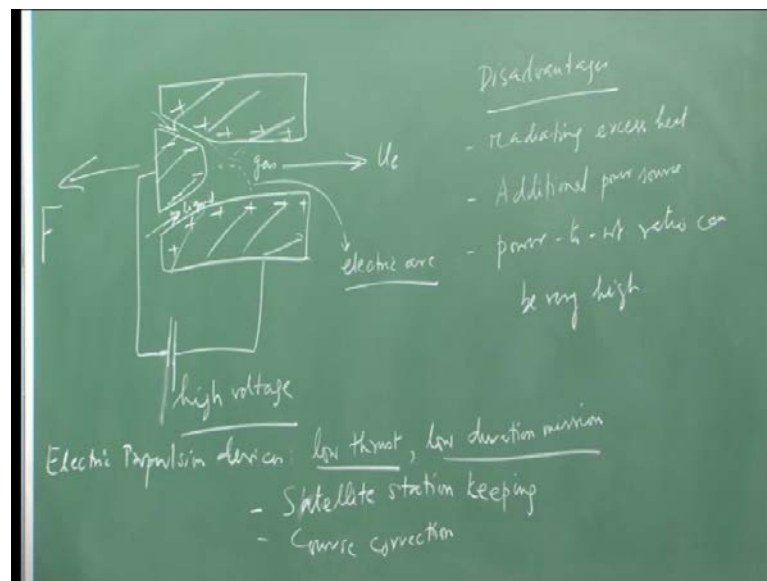 gas
Ue
F
liquid
electric arc
high voltage
Disadvantages
- radiating excess heat
- Additional power source
- power-to-wt ratios can
be very high
Electric Propulsion devices: low thrust, low duration mission
- Satellite station keeping
- Course correction